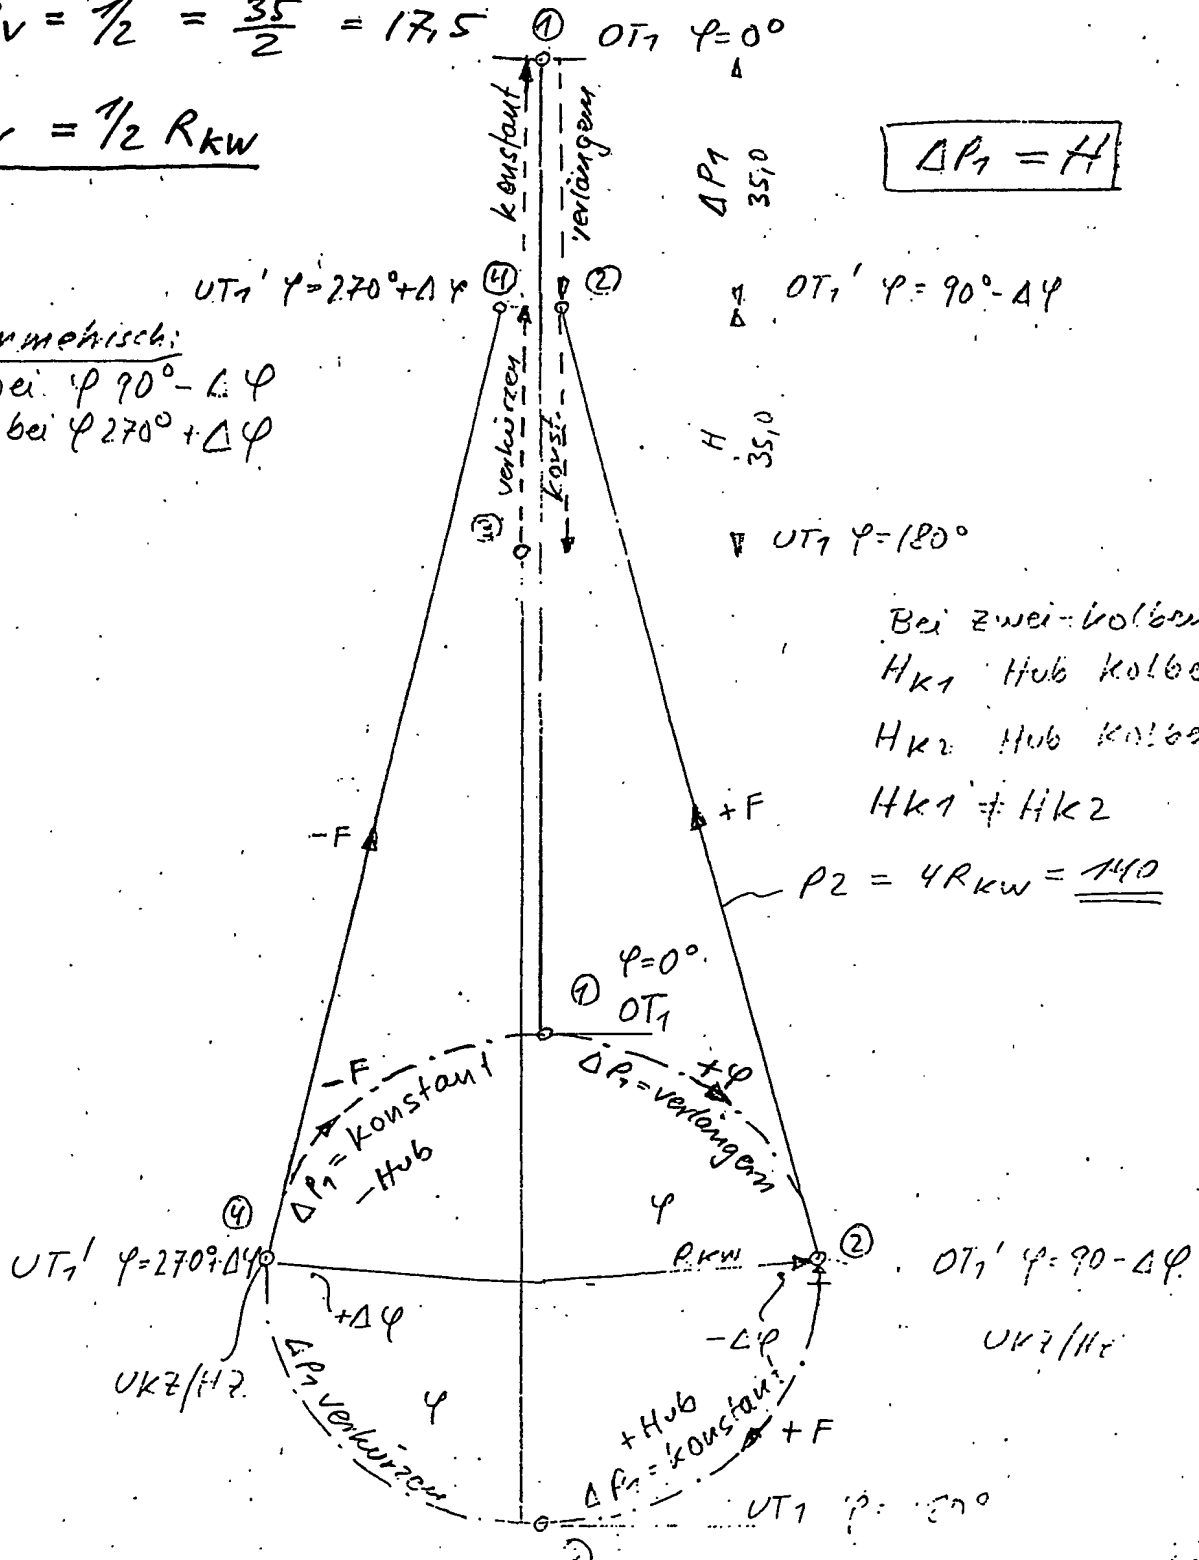 v = 1/2 = 35/2 = 17,5
① OT₁ φ=0°
= 1/2 R_KW
konstant
verlängern
ΔP1
35,0
ΔP₁ = H
UT₁' φ=270°+Δφ ④
②
OT₁' φ=90°-Δφ
φ 90°-Δφ
bei φ 270°+Δφ
verkürzen
konst.
H
35,0
③
UT₁ φ=180°
Bei zwei-
H_K1 Hub
H_K2 Hub
HK1 ≠ HK2
-F
+F
P2 = 4R_KW = 140
φ=0°
① OT₁
-F
ΔP₁=konstant
-Hub
+φ
ΔP₁=verlängern
φ
④
UT₁' φ=270°+Δφ
R_KW
②
OT₁' φ=90-Δφ
+Δφ
-Δφ
UKZ/HZ
UKZ/HZ
ΔP₁ verkürzen
φ
+Hub
ΔP₁=konstant
+F
UT₁